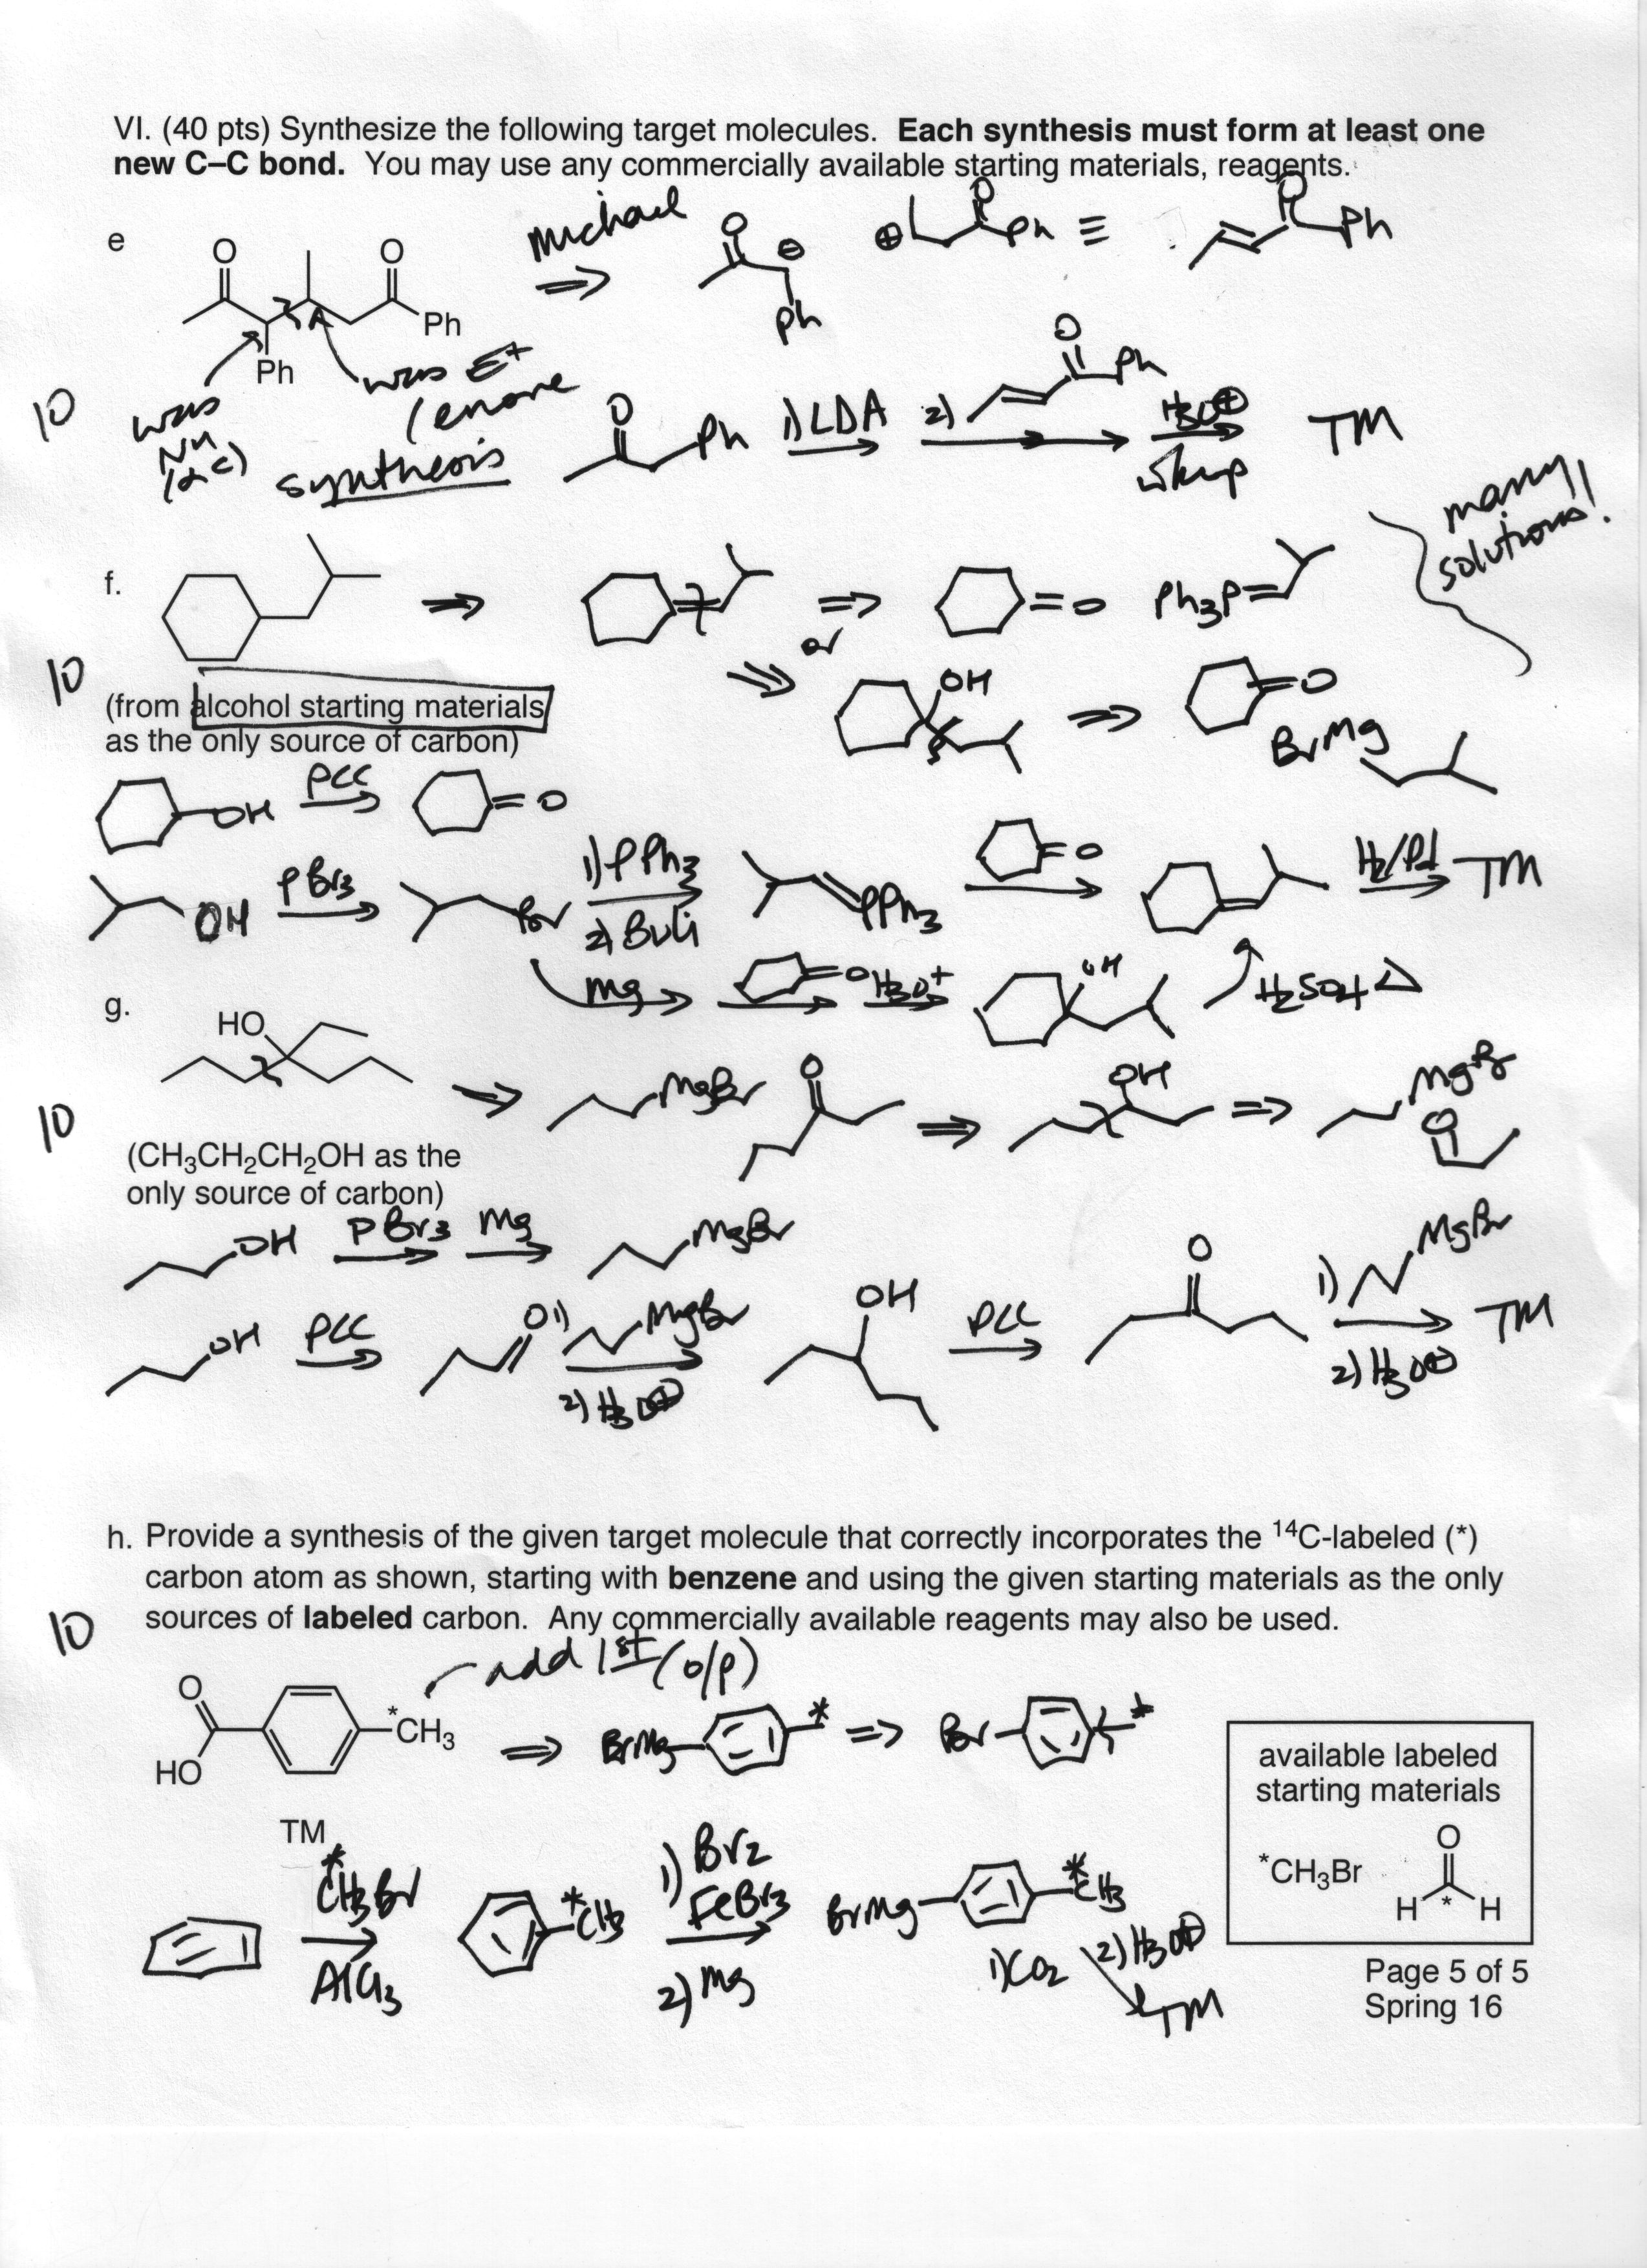 VI. (40 pts) Synthesize the following target molecules. Each synthesis must form at least one
new C–C bond. You may use any commercially available starting materials, reagents.
e
O
O
Ph
Ph
10
was
Nu
(αC)
was E+
(enone
Michael
⇒
O
⊖
Ph
⊕
O
Ph
≡
O
Ph
synthesis
O
Ph
1) LDA
2)
O
Ph
H3O⊕
wkup
TM
many
solutions!
f.
10
⇒
⇒
=O
Ph3P=
or
⇒
OH
⇒
=O
BrMg
(from alcohol starting materials
as the only source of carbon)
OH
PCC
=O
OH
PBr3
Br
1) PPh3
2) BuLi
PPh3
=O
H2/Pd
TM
Mg
=O
H3O+
OH
H2SO4 Δ
g.
HO
10
⇒
MgBr
O
⇒
OH
⇒
MgBr
O
(CH3CH2CH2OH as the
only source of carbon)
OH
PBr3
Mg
MgBr
OH
PCC
O
1)
MgBr
2) H3O⊕
OH
PCC
O
1)
MgBr
2) H3O⊕
TM
h. Provide a synthesis of the given target molecule that correctly incorporates the 14C-labeled (*)
carbon atom as shown, starting with benzene and using the given starting materials as the only
sources of labeled carbon. Any commercially available reagents may also be used.
10
add 1st (o/p)
O
HO
*CH3
TM
⇒
BrMg
*
⇒
Br
*
available labeled
starting materials
*CH3Br
O
H * H
*
CH3Br
AlCl3
*
CH3
1) Br2
FeBr3
2) Mg
BrMg
*
CH3
1) CO2
2) H3O⊕
TM
Page 5 of 5
Spring 16